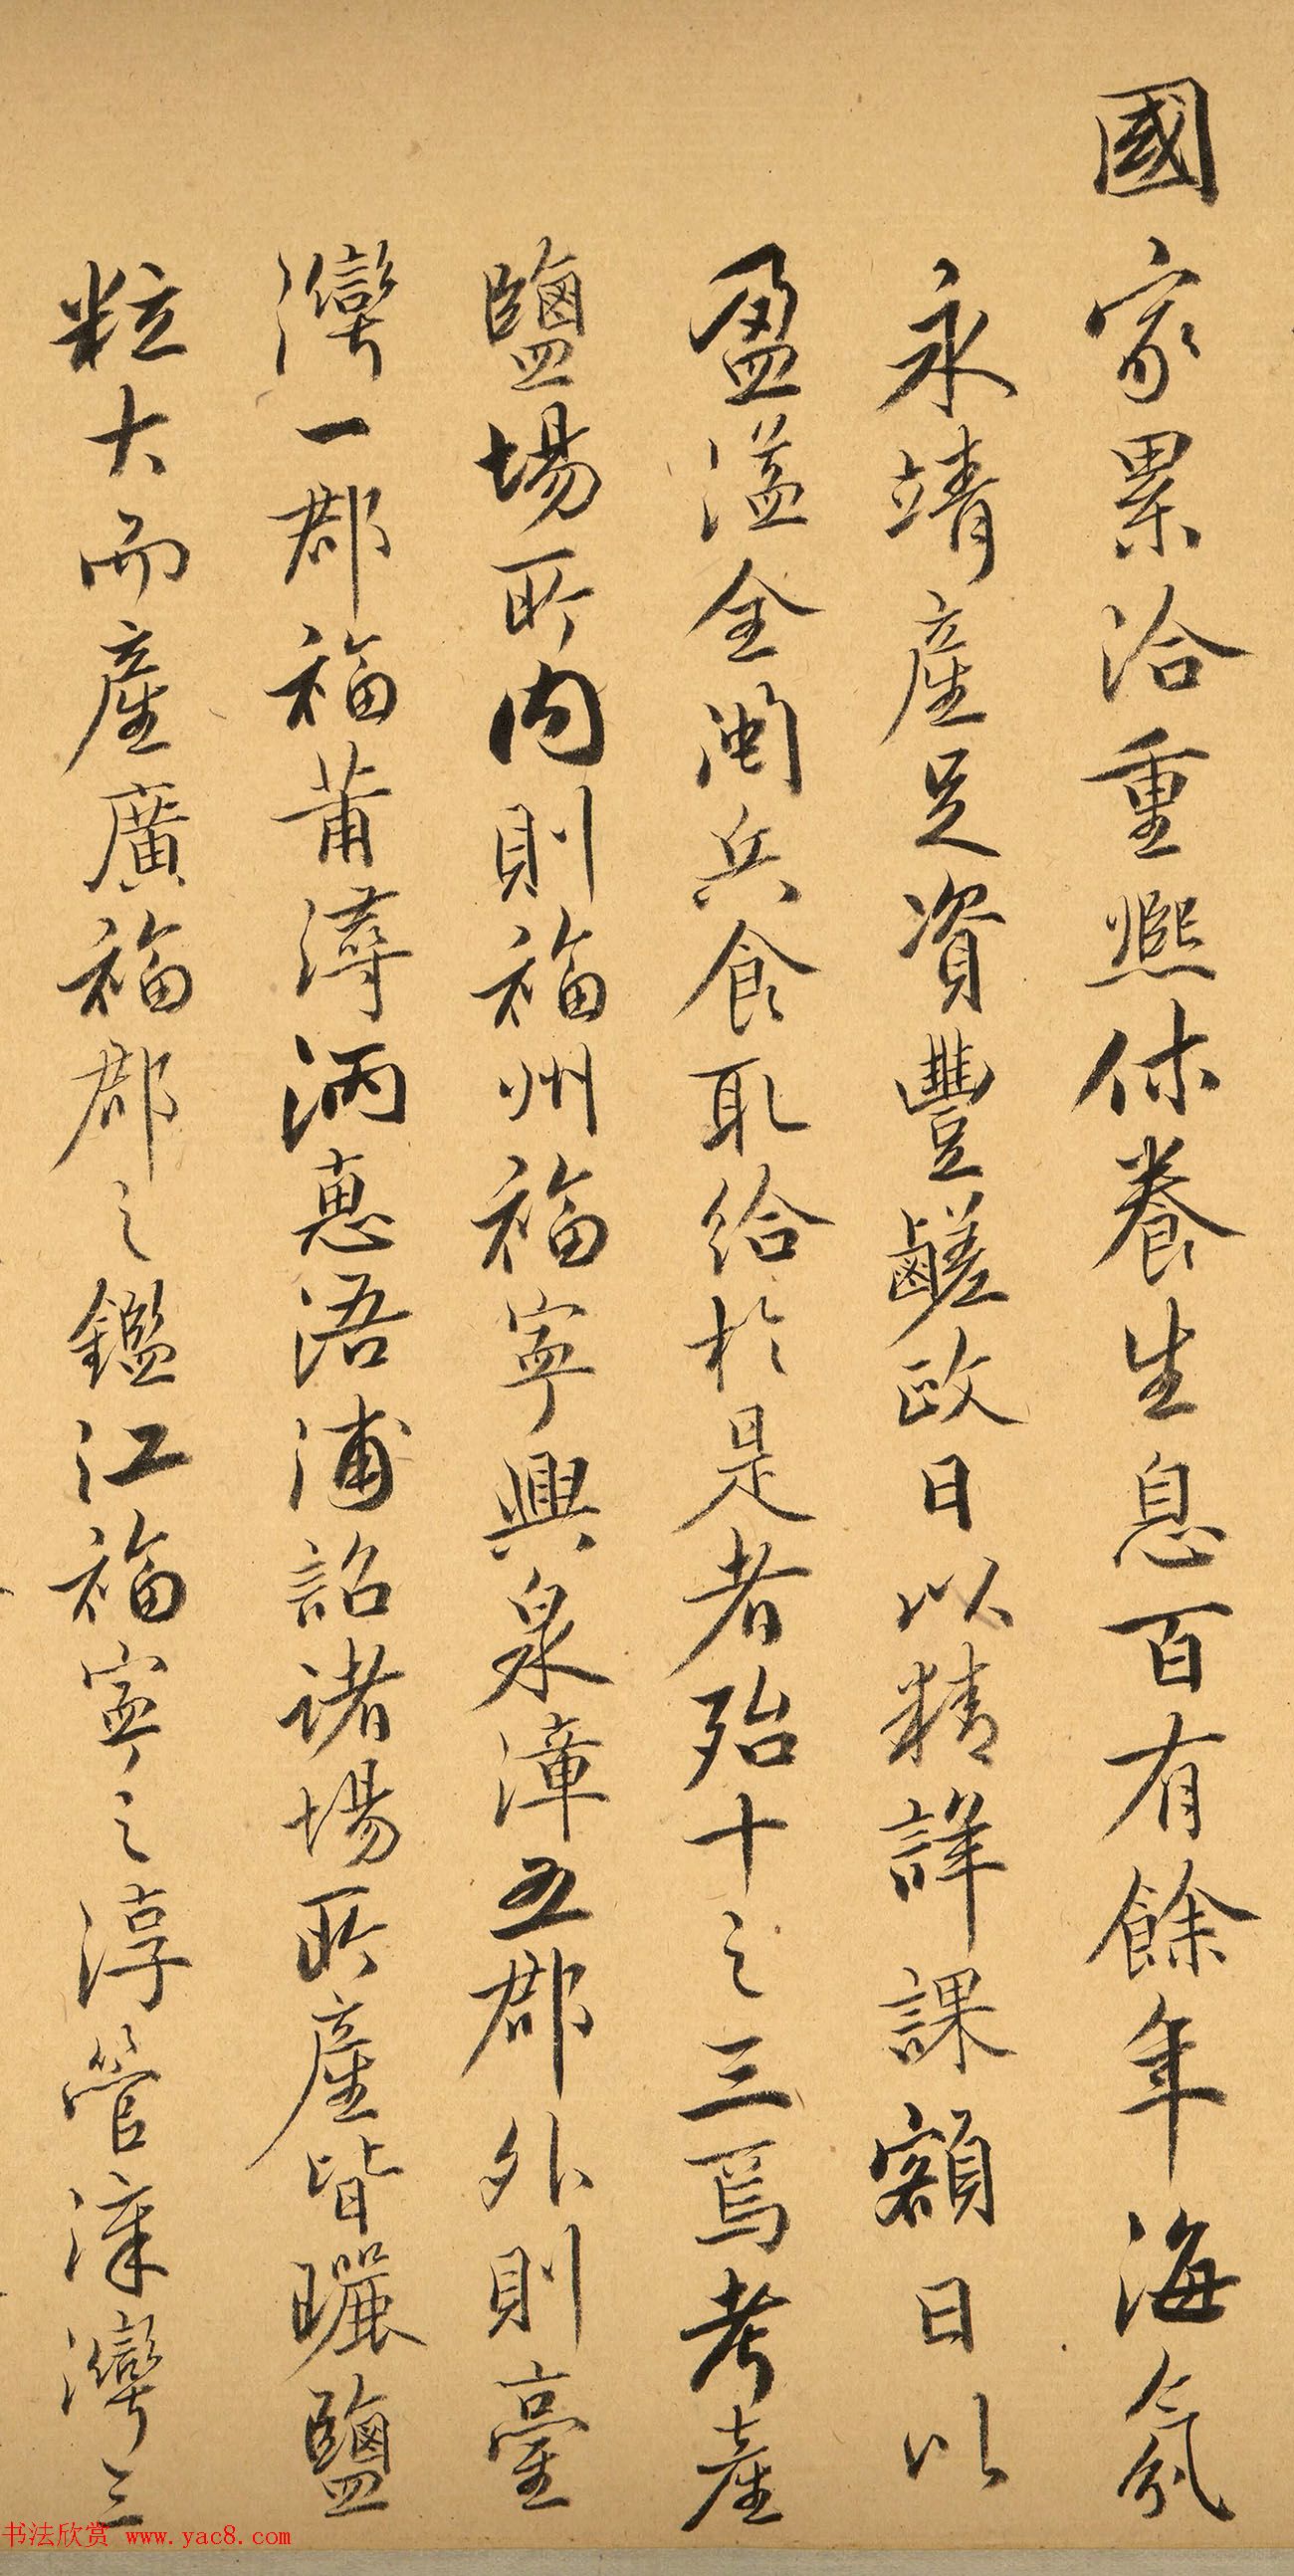 國家累洽重熙休養生息百有餘年海氛
永靖產足資豐鹺政日以精詳課額日以
盈溢全閩兵食取給於是者殆十之三焉考產
鹽場所內則福州福寧興泉漳五郡外則臺
灣一郡福莆潯洒惠浯浦詔諸場所產皆曬鹽
粒大而產廣福郡之鑑江福寧之淳管漳灣三
书法欣赏 www.yac8.com